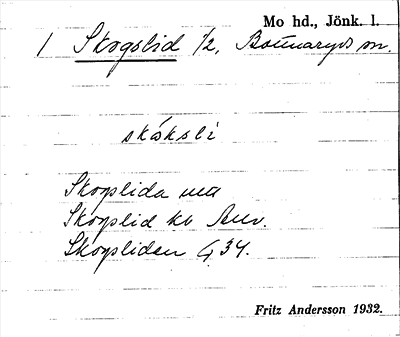 Mo hd., Jönk. l.
1 Skogslid 1/2, Bottnaryds sn.
skåksli
Skogslida
Skogslid kb
Skogsliden G 34.
Fritz Andersson 1932.